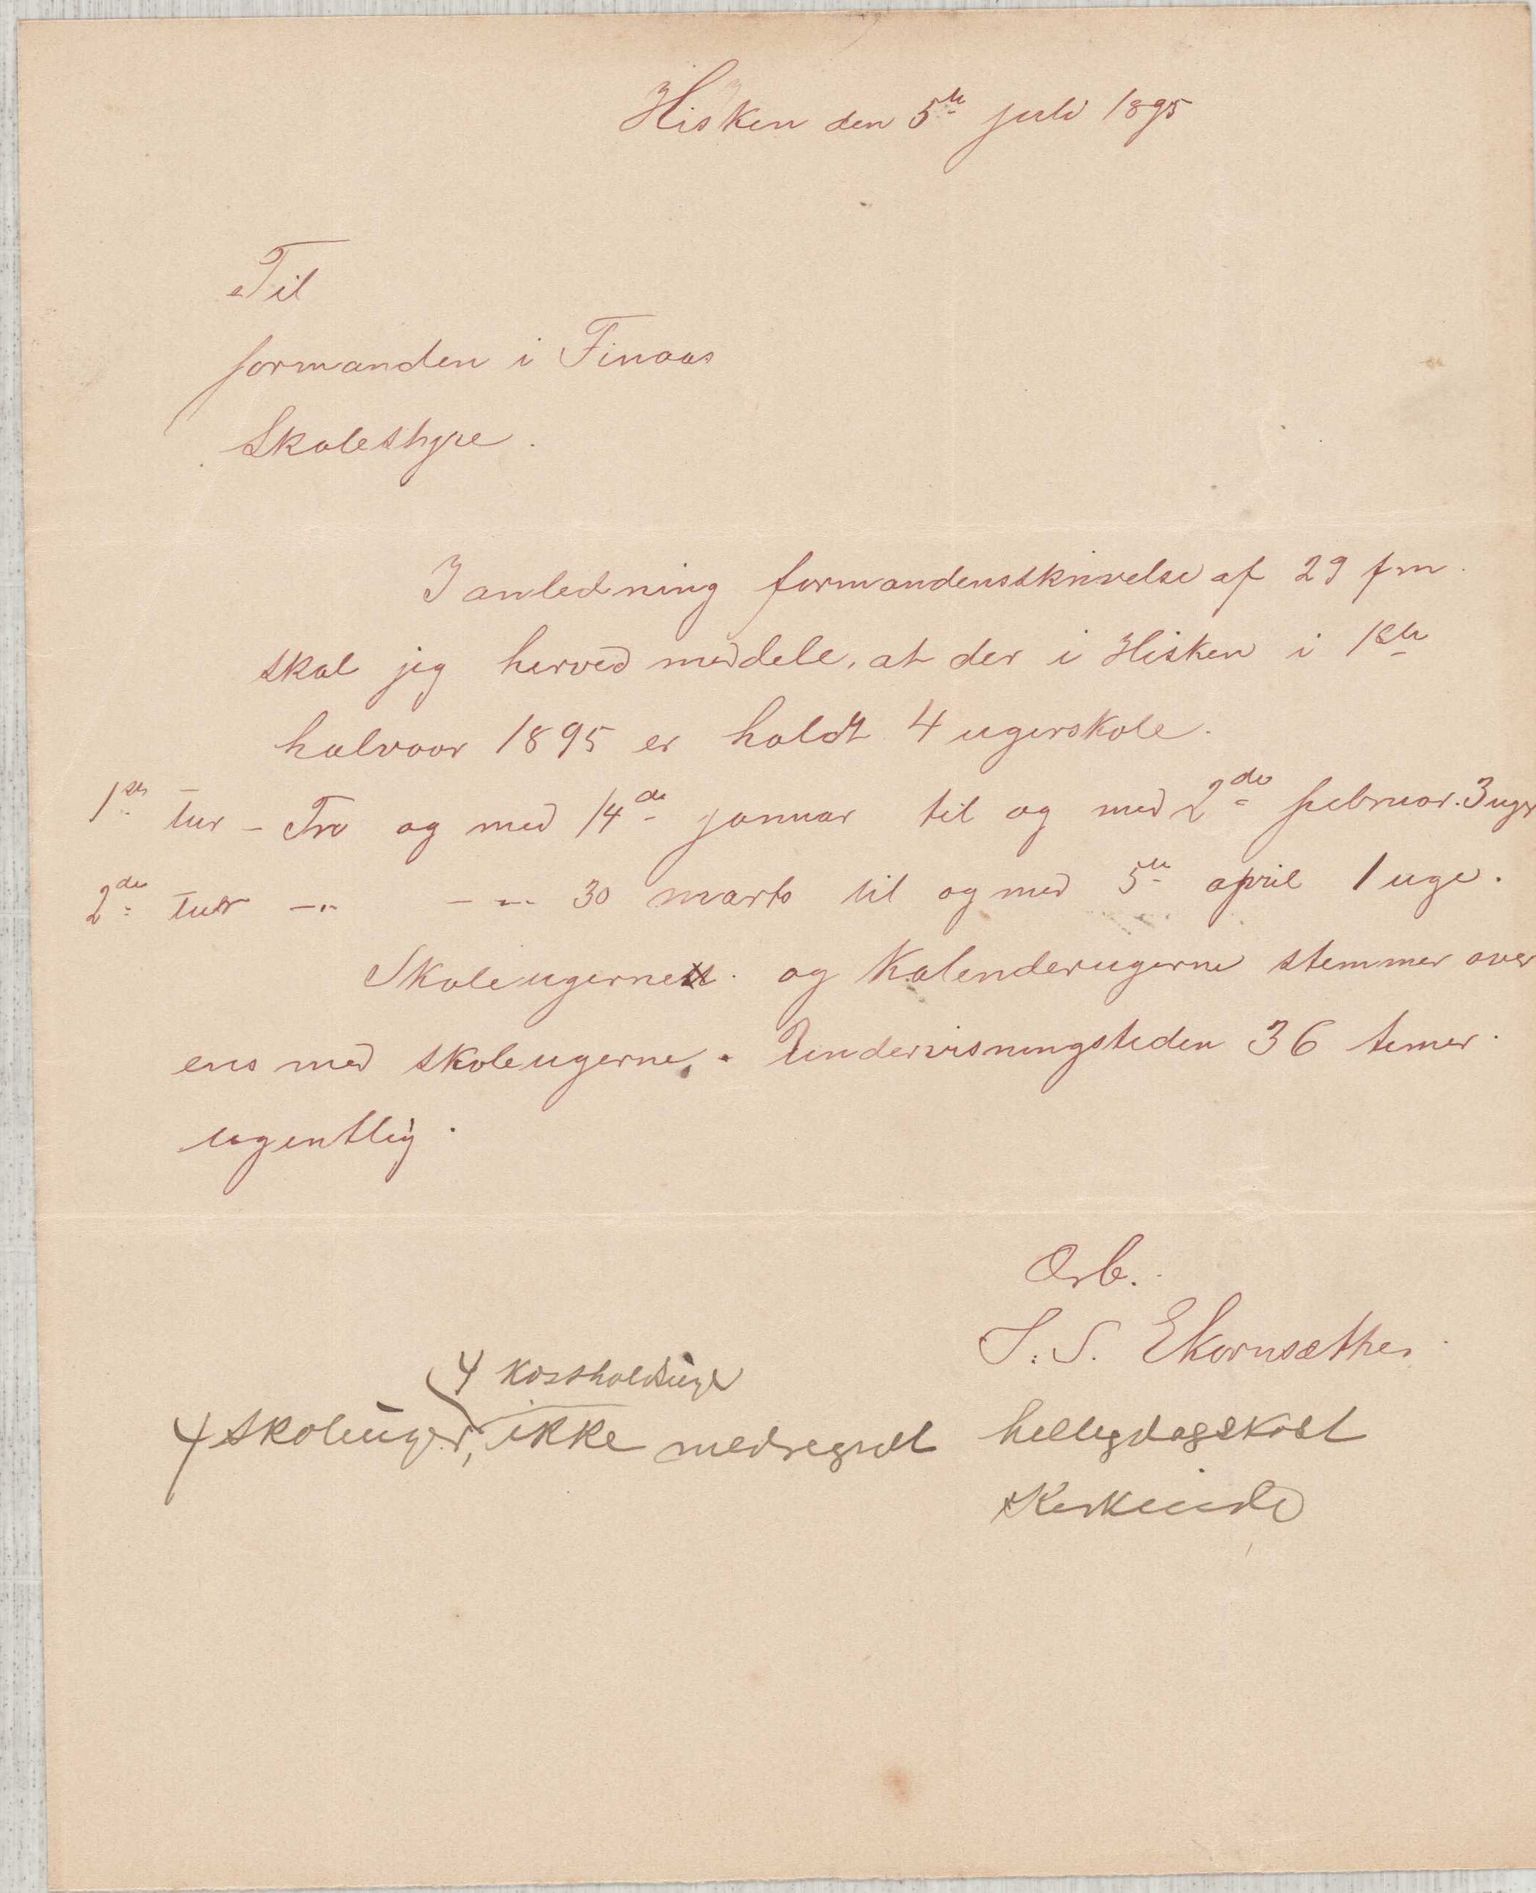 Hisken den 5te juli 1895
Til
formanden i Finaas
Skolestyre.
I anledning formandensskrivelse af 29 f m.
skal jeg herved meddele, at der i Hisken i 1ste
halvaar 1895 er holdt 4 ugerskole.
1ste tur - Fra og med 14de januar til og med 2den februar. 3 uger
2den tur -"- - -"- 30 marts til og med 5te april 1 uge.
Skoleugerne og Kalenderugerne stemmer over
ens med skoleugerne. Undervisningstiden 36 timer
ugentlig.
Ærb.
S. S. Ekornsæther
4 kostholdsuger
4 skoleuger, ikke medregnet helligdagskost